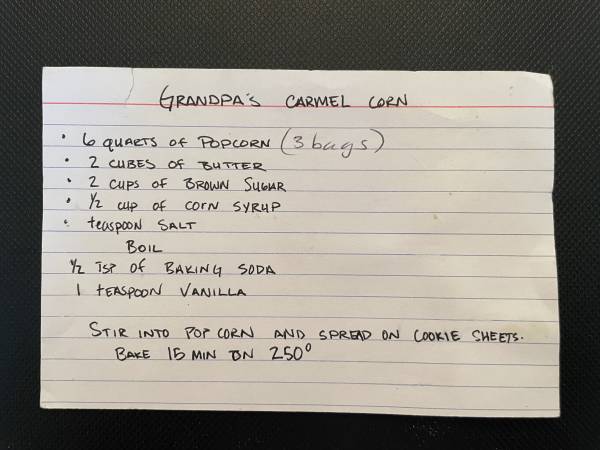 GRANDPA'S CARMEL CORN
• 6 QUARTS OF POPCORN (3 bags)
• 2 CUBES OF BUTTER
• 2 CUPS OF BROWN SUGAR
• 1/2 CUP OF CORN SYRUP
• teaspoon SALT
BOIL
1/2 TSP OF BAKING SODA
1 tEASPOON VANILLA
STIR INTO POPCORN AND SPREAD ON COOKIE SHEETS.
BAKE 15 MIN ON 250°